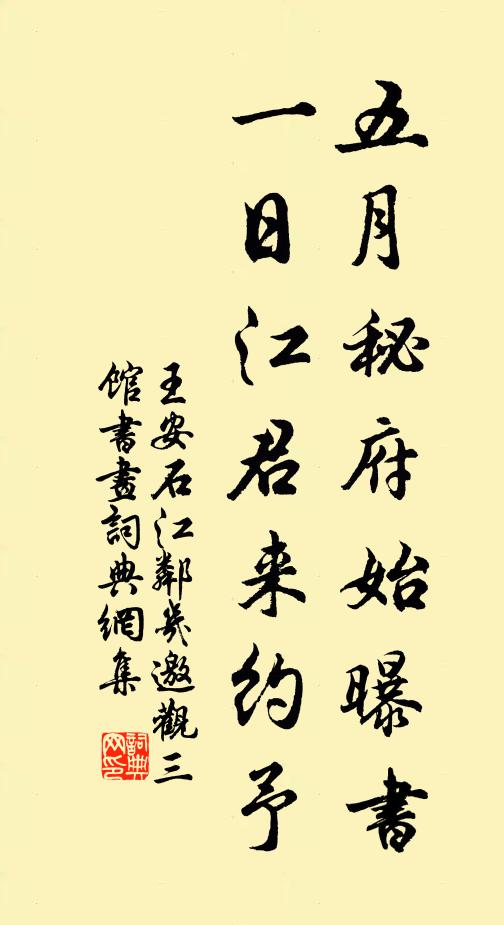 五月秘府始曝書
一日江君来約予
王安石江鄰幾邀觀三
館書畫詞典網集
詞典
网印